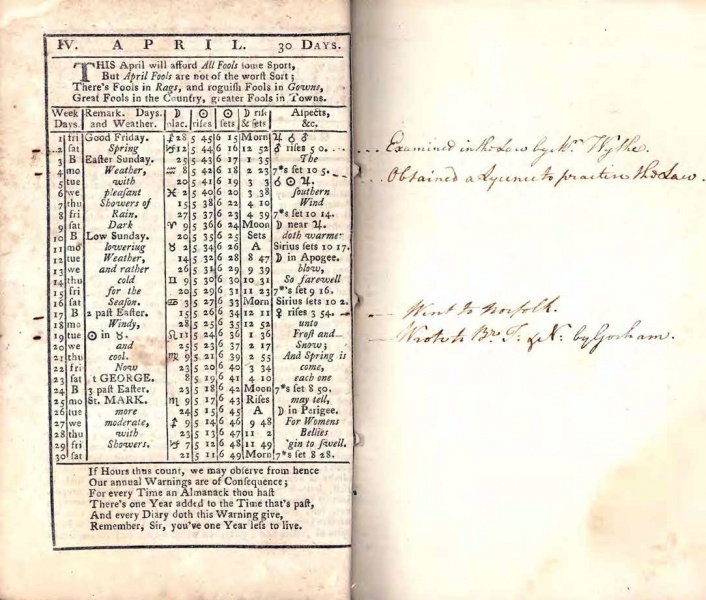 IV. APRIL. 30 DAYS.
THIS April will afford All Fools some Sport,
But April Fools are not of the worst Sort;
There's Fools in Rags, and roguish Fools in Gowns,
Great Fools in the Country, greater Fools in Towns.
Week Remark. Days. ☽ ☉ ☉ ☽ rise Aspects,
Days. and Weather. plac. rises sets & sets &c.
1 fri Good Friday. ♐ 28 5 45 6 15 Morn ♃ ☌ ♂
2 sat Spring ♑ 12 5 44 6 16 12 52 ♂ rises 5 0.
3 B Easter Sunday. 25 5 43 6 17 1 35 The
4 mo Weather, ♒ 8 5 42 6 18 2 23 7*s set 10 5.
5 tue with 20 5 41 6 19 3 3 ☌ ☉ ♃.
6 we pleasant ♓ 2 5 40 6 20 3 38 southern
7 thu Showers of 15 5 38 6 22 4 10 Wind
8 fri Rain. 27 5 37 6 23 4 39 7*s set 10 14.
9 sat Dark ♈ 9 5 36 6 24 Moon ☽ near ♃.
10 B Low Sunday. 20 5 35 6 25 Sets doth warmer
11 mo lowering ♉ 2 5 34 6 26 A Sirius sets 10 17.
12 tue Weather, 14 5 32 6 28 8 47 ☽ in Apogee.
13 we and rather 26 5 31 6 29 9 39 blow,
14 thu cold ♊ 9 5 30 6 30 10 31 So farewell
15 fri for the 20 5 29 6 31 11 23 7*'s set 9 16.
16 sat Season. ♋ 3 5 27 6 33 Morn Sirius sets 10 2.
17 B 2 past Easter. 15 5 26 6 34 12 11 ♀ rises 3 54.
18 mo Windy, 28 5 25 6 35 12 52 unto
19 tue ☉ in ♉. ♌ 11 5 24 6 36 1 36 Frost and
20 we and 25 5 23 6 37 2 17 Snow;
21 thu cool. ♍ 9 5 21 6 39 2 55 And Spring is
22 fri Now 23 5 20 6 40 3 34 come,
23 sat t GEORGE. 8 5 19 6 41 4 10 each one
24 B 3 past Easter. 23 5 18 6 42 Moon 7*s set 8 50.
25 mo St. MARK. ♏ 9 5 17 6 43 Rises may tell,
26 tue more 24 5 15 6 45 A ☽ in Perigee.
27 we moderate, ♐ 9 5 14 6 46 9 48 For Womens
28 thu with 23 5 13 6 47 11 2 Bellies
29 fri Showers. ♑ 7 5 12 6 48 11 49 'gin to swell.
30 sat 21 5 11 6 49 Morn 7*s set 8 28.
If Hours thus count, we may observe from hence
Our annual Warnings are of Consequence;
For every Time an Almanack thou hast
There's one Year added to the Time that's past,
And every Diary doth this Warning give,
Remember, Sir, you've one Year less to live.
Examined in the Law by Mr. Wythe.
Obtained a Lycence to practice the Law.
Went to Norfolk.
Wrote to Brs. T. & N. by Gorham.